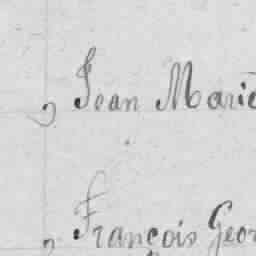 , Jean Marie
, François Geor